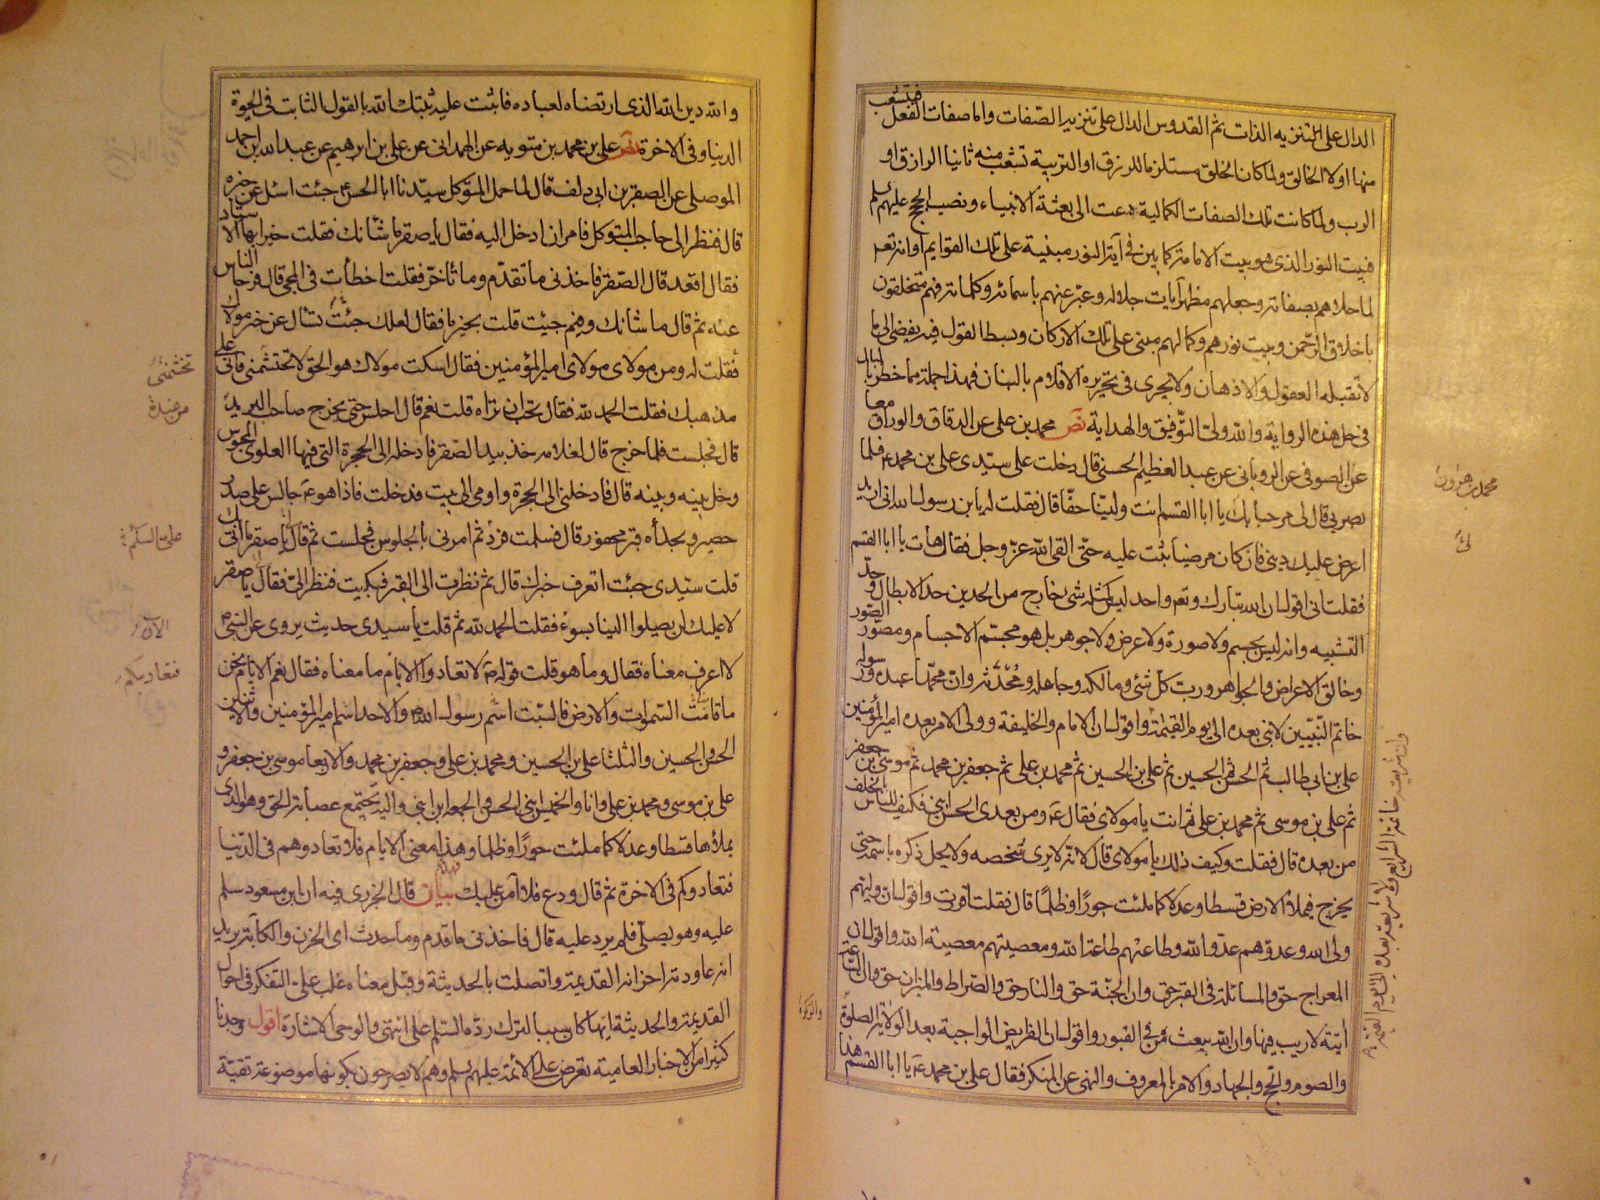 الدال على التنزيه الذات ثم القدوس الدال على تنزيه الصفات واما صفات الفعل فتشعب
منها اولا الخالق ولما كان الخلق مستلزما للرزق او التربية تشعب منه ثانيا الرازق او
الرب ولما كانت تلك الصفات الكمالية دعت الى بعثة الانبياء ونصب الحجج عليهم سلم
فبيت النور الذى هو بيت الامامة كما بين فى آية النور مبنية على تلك القوايم او انه تعم
لما حلاهم بصفاته وجعلهم مظهر آيات جلاله وعبر عنهم باسمائه وكلماته فهم متخلقون
باخلاق الرحمن وبيت نورهم وكمالهم مبنى على تلك الاركان وبسط القول فيه يفضى الى ما
لا تقبله العقول والاذهان ولا يجرى فى تحريره الاقلام بالبنان فهذا جملة مما خطر بالبال
فى حل هذه الرواية والله ولى التوفيق والهداية نص محمد بن على عن الدقاق والوراق معا
عن الصوفى عن الرويانى عن عبد العظيم الحسنى قال دخلت على سيدى على بن محمد ع فلما
بصر بى قال لى مرحبا بك يا ابا القسم انت ولينا حقا قال فقلت له يا بن رسول الله انى اريد
اعرض عليك دينى فان كان مرضيا ثبت عليه حتى القى الله عز وجل فقال هات يا ابا القسم
فقلت انى اقول ان الله تبارك وتعم واحد ليس كمثله شئ خارج من الحدين حد الابطال وحد
التشبيه وانه ليس بجسم ولا صورة ولا عرض ولا جوهر بل هو مجسم الاجسام ومصور الصور
وخالق الاعراض والجواهر ورب كل شئ ومالكه وجاعله ومحدثه وان محمدا عبده ورسوله
خاتم النبيين لا نبى بعده الى يوم القيمة واقول ان الامام والخليفة وولى الامر بعده امير المؤمنين
على بن ابى طالب ثم الحسن ثم الحسين ثم على بن الحسين ثم محمد بن على ثم جعفر بن محمد ثم موسى بن جعفر
ثم على بن موسى ثم محمد بن على ثم انت يا مولاى فقال ع ومن بعدى الحسن ابنى فكيف للناس بالخلف
من بعده قال فقلت وكيف ذلك يا مولاى قال لانه لا يرى شخصه ولا يحل ذكره باسمه حتى
يخرج فيملا الارض قسطا وعدلا كما ملئت جورا وظلما قال فقلت اقررت واقول ان وليهم
ولى الله وعدوهم عدو الله وطاعتهم طاعة الله ومعصيتهم معصية الله واقول ان
المعراج حق والمسائلة فى القبر حق وان الجنة حق والنار حق والصراط والميزان حق وان الساعة
آتية لا ريب فيها وان الله يبعث من فى القبور واقول ان الفرايض الواجبة بعد الولاية الصلوة
والصوم والحج والجهاد والامر بالمعروف والنهى عن المنكر فقال على بن محمد ع يا ابا القسم هذا
محمد بن هرون
وان شريعته خاتمة الشرايع ولا شريعة بعده الى يوم القيمة
والزكوة
والله دين الله الذى ارتضاه لعباده فاثبت عليه ثبتك الله بالقول الثابت فى الحيوة
الدنيا وفى الاخرة نص على بن محمد بن متويه عن الهمدانى عن على بن ابرهيم عن عبد الله بن احمد
الموصلى عن الصقر بن ابى دلف قال لما حمل المتوكل سيدنا ابا الحسن جئت اسئل عن خبره
قال فنظر الى حاجب المتوكل فامر ان ادخل اليه فقال يا صقر ما شانك فقلت خير ايها الاستاد
فقال اقعد قال الصقر فاخذنى ما تقدم وما تاخر فقلت اخطأت فى المجئ قال فزجر الناس
عنه ثم قال ما شانك وفيم جئت قلت بخير ما فقال لعلك جئت تسال عن خبر مولاك
فقلت له ومن مولاى مولاى امير المؤمنين فقال اسكت مولاك هو الحق لا تحتشمنى فانى على
مذهبك فقلت الحمد لله فقال تحب ان تراه قلت نعم قال اجلس حتى يخرج صاحب البريد
قال فجلست فلما خرج قال لغلامه خذ بيد الصقر فادخله الى الحجرة التى فيها العلوى المحبوس
وخل بينه وبينه قال فادخلنى الى الحجرة واومى الى بيت فدخلت فاذا هو ع جالس على صدر
حصير وبحذاه قبر محفور قال فسلمت فرد ثم امرنى بالجلوس فجلست ثم قال يا صقر ما اتى بك
قلت سيدى جئت اتعرف خبرك قال ثم نظرت الى القبر فبكيت فنظر الى فقال يا صقر
لا عليك لن يصلوا الينا بسوء فقلت الحمد لله ثم قلت يا سيدى حديث يروى عن النبى ص
لا اعرف معناه فقال وما هو قلت قوله ص لا تعادوا الايام ما معناه فقال نعم الايام نحن
ما قامت السموات والارض فالسبت اسم رسول الله ص والاحد اسم امير المؤمنين والاثنين
الحسن والحسين والثلثا على بن الحسين ومحمد بن على وجعفر بن محمد والاربعا موسى بن جعفر و
على بن موسى ومحمد بن على وانا والخميس ابنى الحسن والجمعه ابن ابنى واليه تجتمع عصابة الحق وهو الذى
يملأها قسطا وعدلا كما ملئت جورا وظلما وهذا معنى الايام فلا تعادوهم فى الدنيا
فتعادوكم فى الاخرة ثم قال ودع فلا آمن عليك بيان قال الجزرى فيه ان ابن مسعود سلم
عليه وهو يصلى فلم يرد عليه قال فاخذنى ما قدم وما حدث اى الحزن والكابة يريد
انه عاودته احزانه القديمة واتصلت بالحديثة وقيل معناه غلب على التفكر فى احوالى
القديمة والحديثة ايها كان سببا لترك رده السلم على انتهى والوحى الاشارة اقول وجدنا
كثيرا من الاخبار العامية تعرض على الائمة عليهم سلم وهم لا يصرحون بكونها موضوعة تقية
تحتشمنى
عليه السلام
الان
فتعاديكم